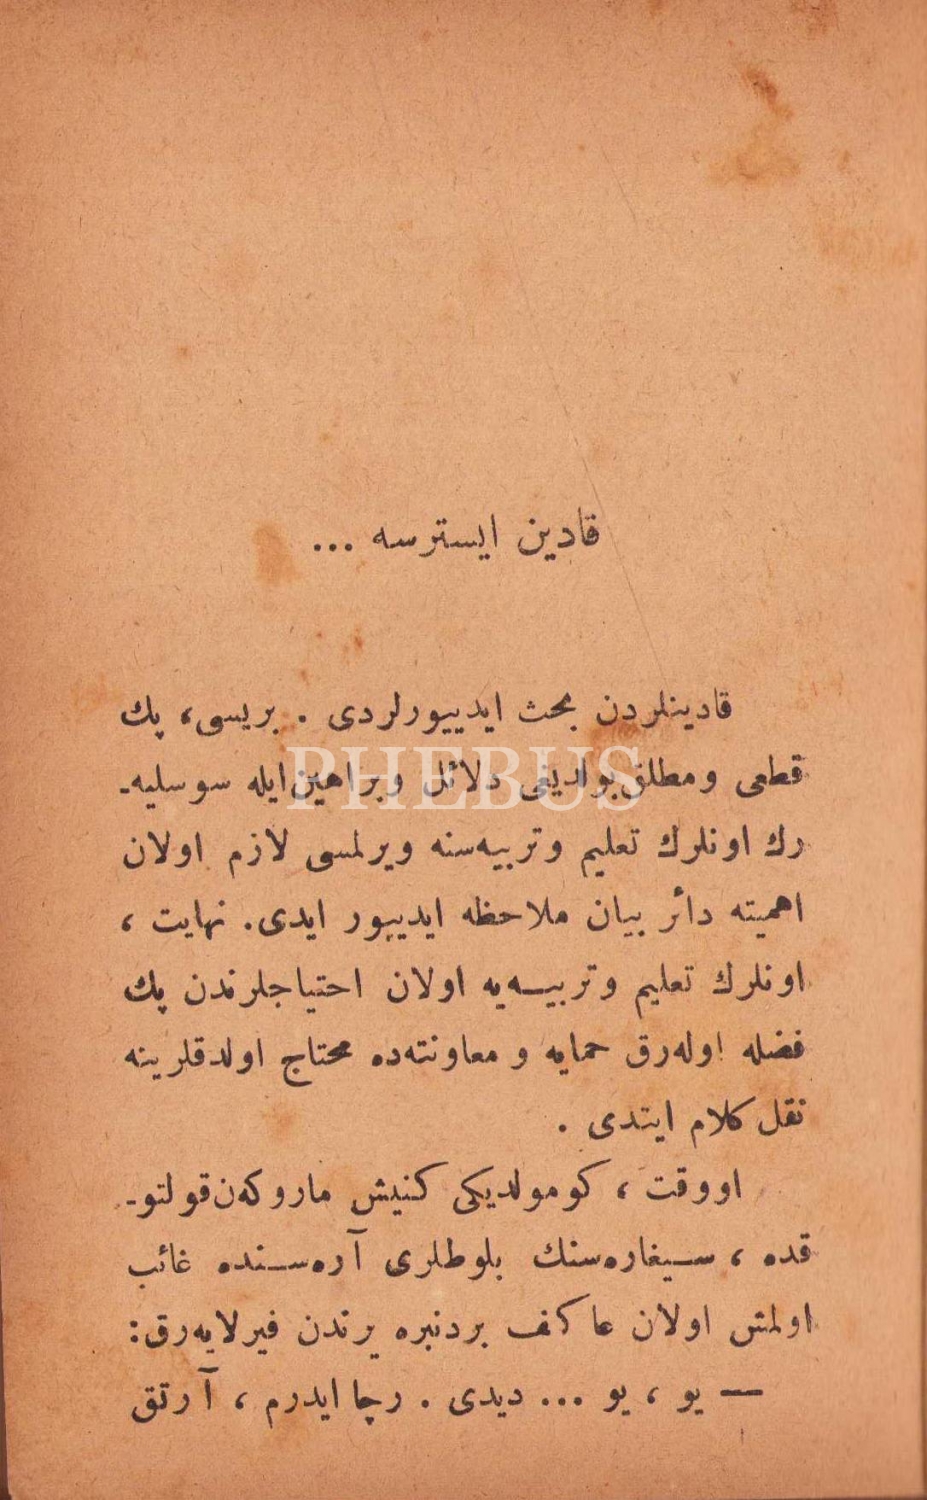 قادین ایسترسه ...
قادینلردن بحث ایدییورلردی . بریسی، پك
قطعی و مطلق بولدیغی دلائل و براهین ایله سوسلیه-
رك اونلرك تعلیم و تربیه‌سنه ویرلمسی لازم اولان
اهمیته دائر بیان ملاحظه ایدییور ایدی. نهایت ،
اونلرك تعلیم و تربیـه‌یه اولان احتیاجلرندن پك
فضله اوله‌رق حمایه و معاونته‌ده محتاج اولدقلرینه
نقل كلام ایتدی .
او وقت ، كومولدیكی كنیش ماروكه‌ن قولتو-
قده ، سـیغاره‌سنك بلوطلری آره‌سـنده غائب
اولمش اولان عاكف بردنبره یرندن فیرلایه‌رق:
— یو ، یو ... دیدی . رجا ایدرم ، آرتق
PHEBUS